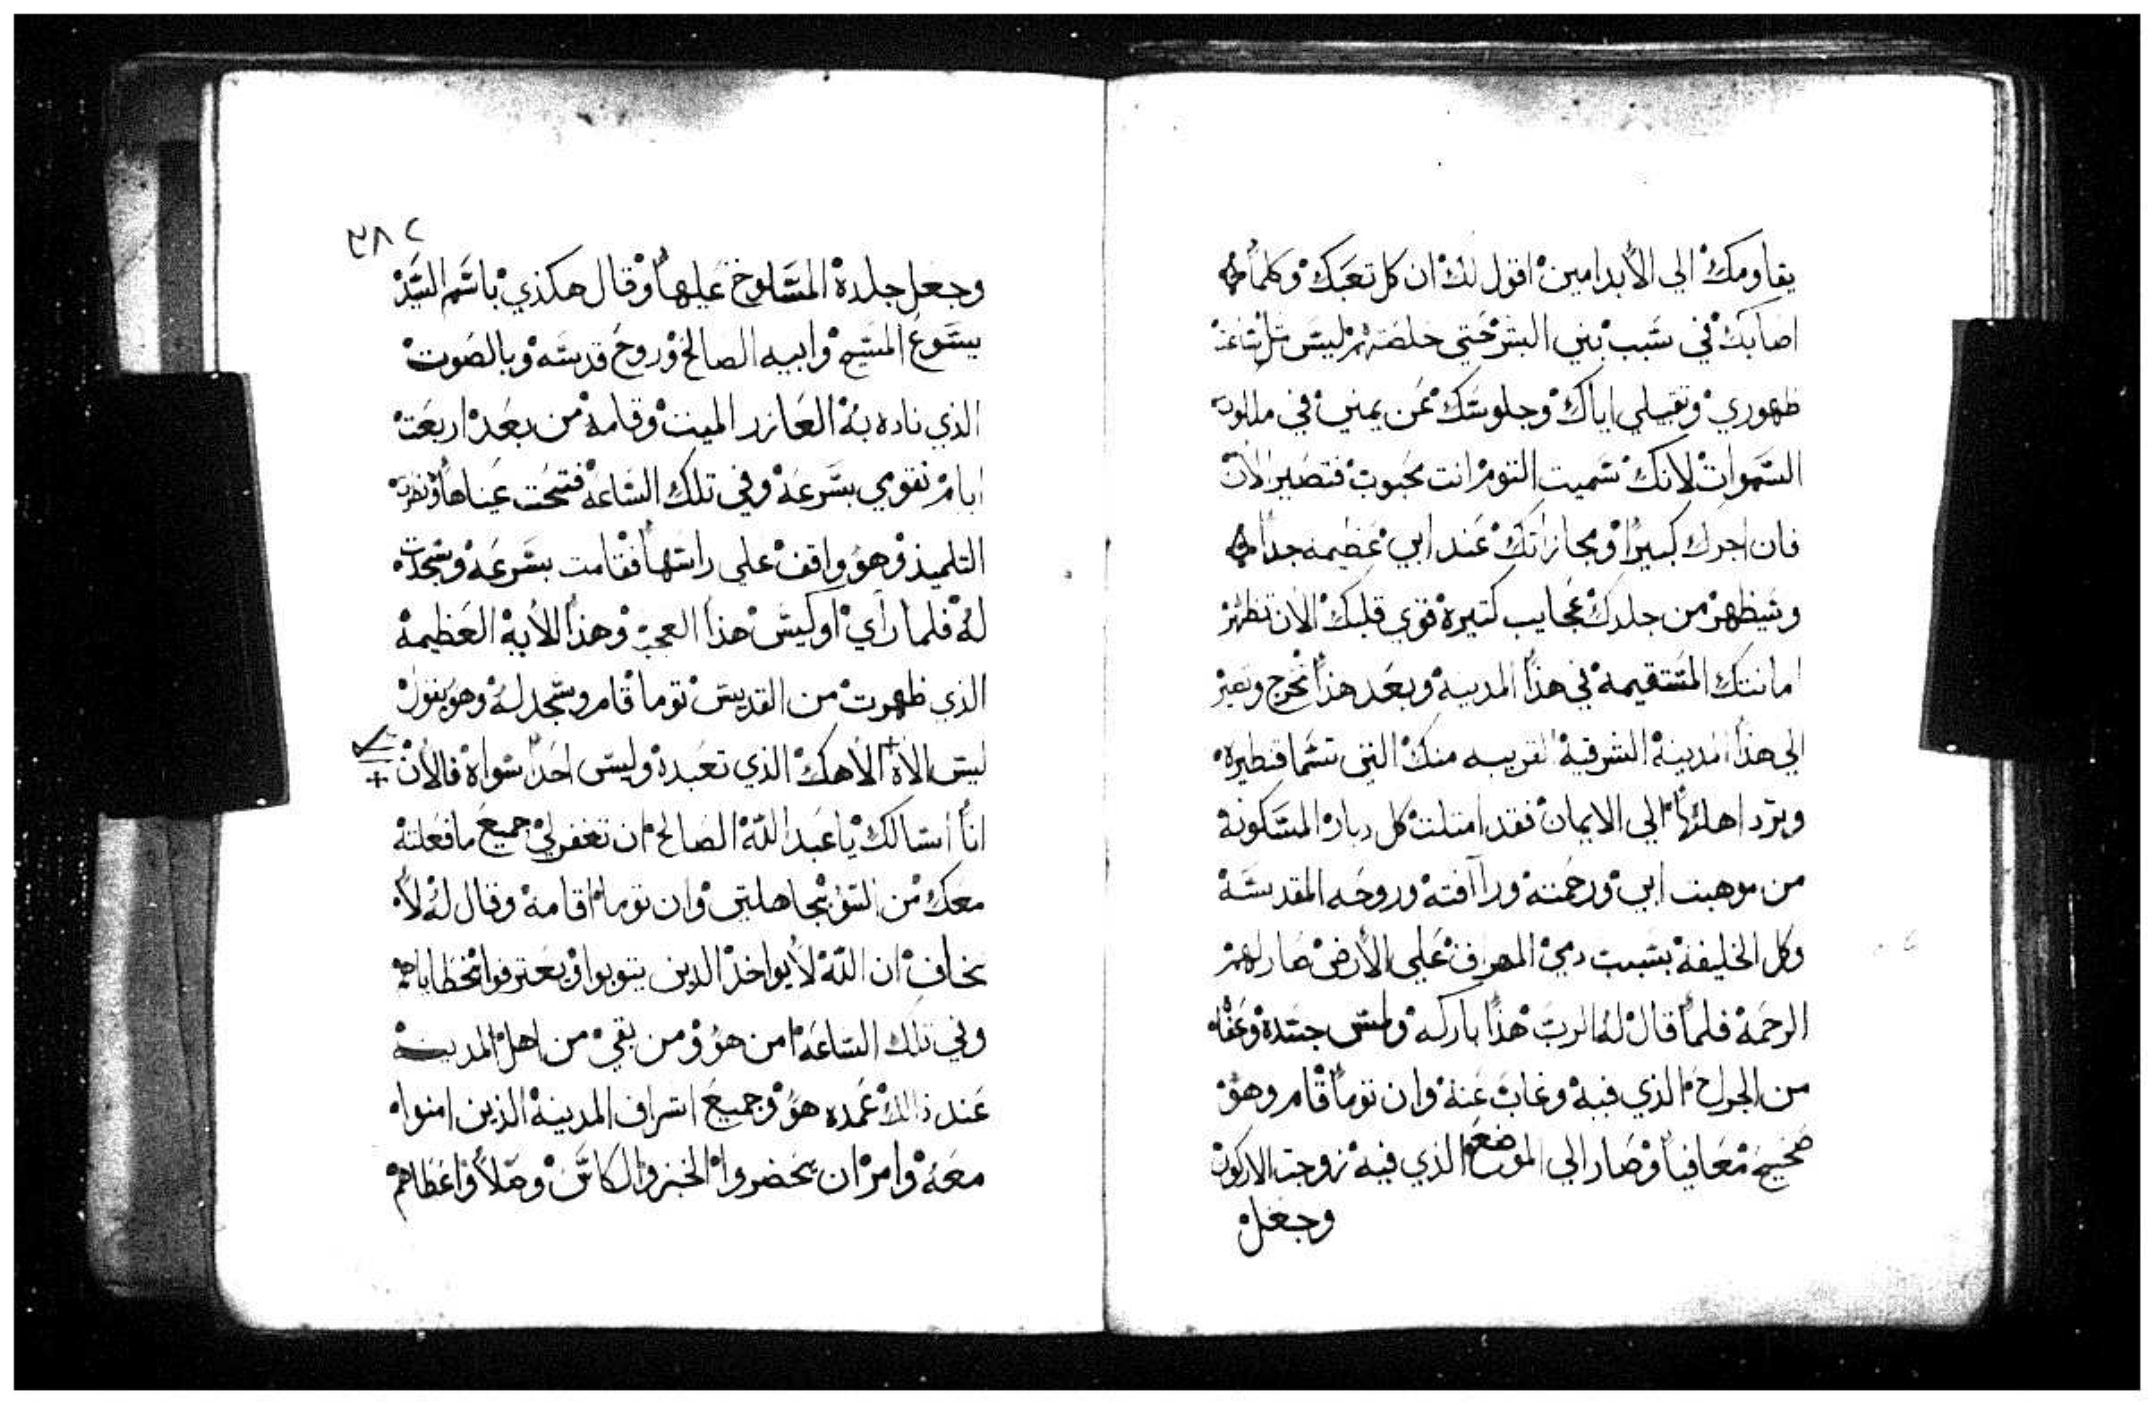 يقاومك الي الأبد امين اقول لك ان كل تعبك وكلما
اصابك في سبب بني البشر حتي خلصتهم ليس مثل ساعة
ظهوري وتقبيلي اياك وجلوسك عن يميني في ملكوت
السموات لانك سميت التوم انت محبوب فتصير الان
فان اجرك كبيرا ومجازاتك عند ابي عظيمه جدا
وسيظهر من جلدك عجايب كتيرة قوي قلبك الان تظهر
امانتك المستقيمه في هذا المدينة وبعد هذا تخرج وتعبر
الي هذا المدينة الشرقية القريبه منك التي تسما قنطيرة
وترد اهلها الي الايمان فقد امتلت كل ديار المسكونة
من موهبت ابي ورحمته وراافته وروحه المقدسة
وكل الخليقة بسبب دمي المهراق علي الأرض صار لهم
الرحمة فلما قال له الرب هذا باركه ولمس جسده وعفاه
من الجراح الذي فيه وغاب عنه وان توما قام وهو
صحيح معافيا وصار الي الموضع الذي فيه زوجت الاركون
وجعل
٢٨٢
وجعل جلدة المسلوخ عليها وقال هكذي باسم السيد
يسوع المسيح وابيه الصالح وروح قدسه وبالصوت
الذي ناده به العازر الميت وقامه من بعد اربعت
ايام تقومي بسرعة وفي تلك الساعة فتحت عيناها ونظرت
التلميذ وهو واقف علي راسها فقامت بسرعة وسجدت
له فلما راي اوكيس هذا العجب وهذا الأيه العظيمة
الذي ظهرت من القديس توما قام وسجد له وهو يقول
ليس الاه الا الاهك الذي تعبده وليس احدا سواه فالأن
انا اسالك يا عبد الله الصالح ان تغفر لي جميع ما فعلته
معك من السؤ بجاهليتي وان توما اقامه وقال له لا
تخاف ان الله لا يواخذ الدين يتوبوا ويعترفوا بخطاياهم
وفي تلك الساعة امن هو ومن بقي من اهل المدينة
عند ذالك عمده هو وجميع اشراف المدينة الذين امنوا
معه وامر ان يحضروا الخبز والكاس وصلا واعطاهم